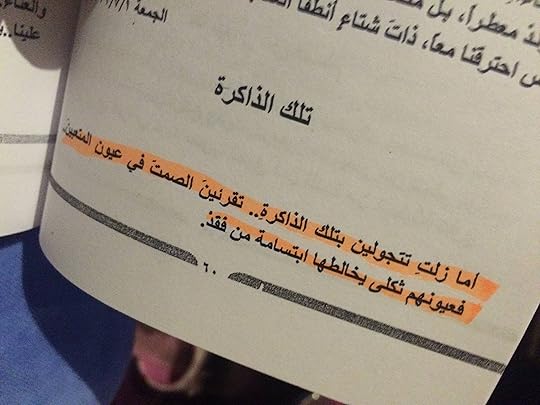 الجمعة
معطرا، بل
احترقنا معا، ذاتَ شتاءٍ انطفأ
علينا..
تلك الذاكرة
أما زلتِ تتجولين بتلك الذاكرةِ.. تقرئينَ الصمتَ في عيون المتعبين..
فعيونهم ثكلى يخالطها ابتسامة من فَقدْ.
٦٠